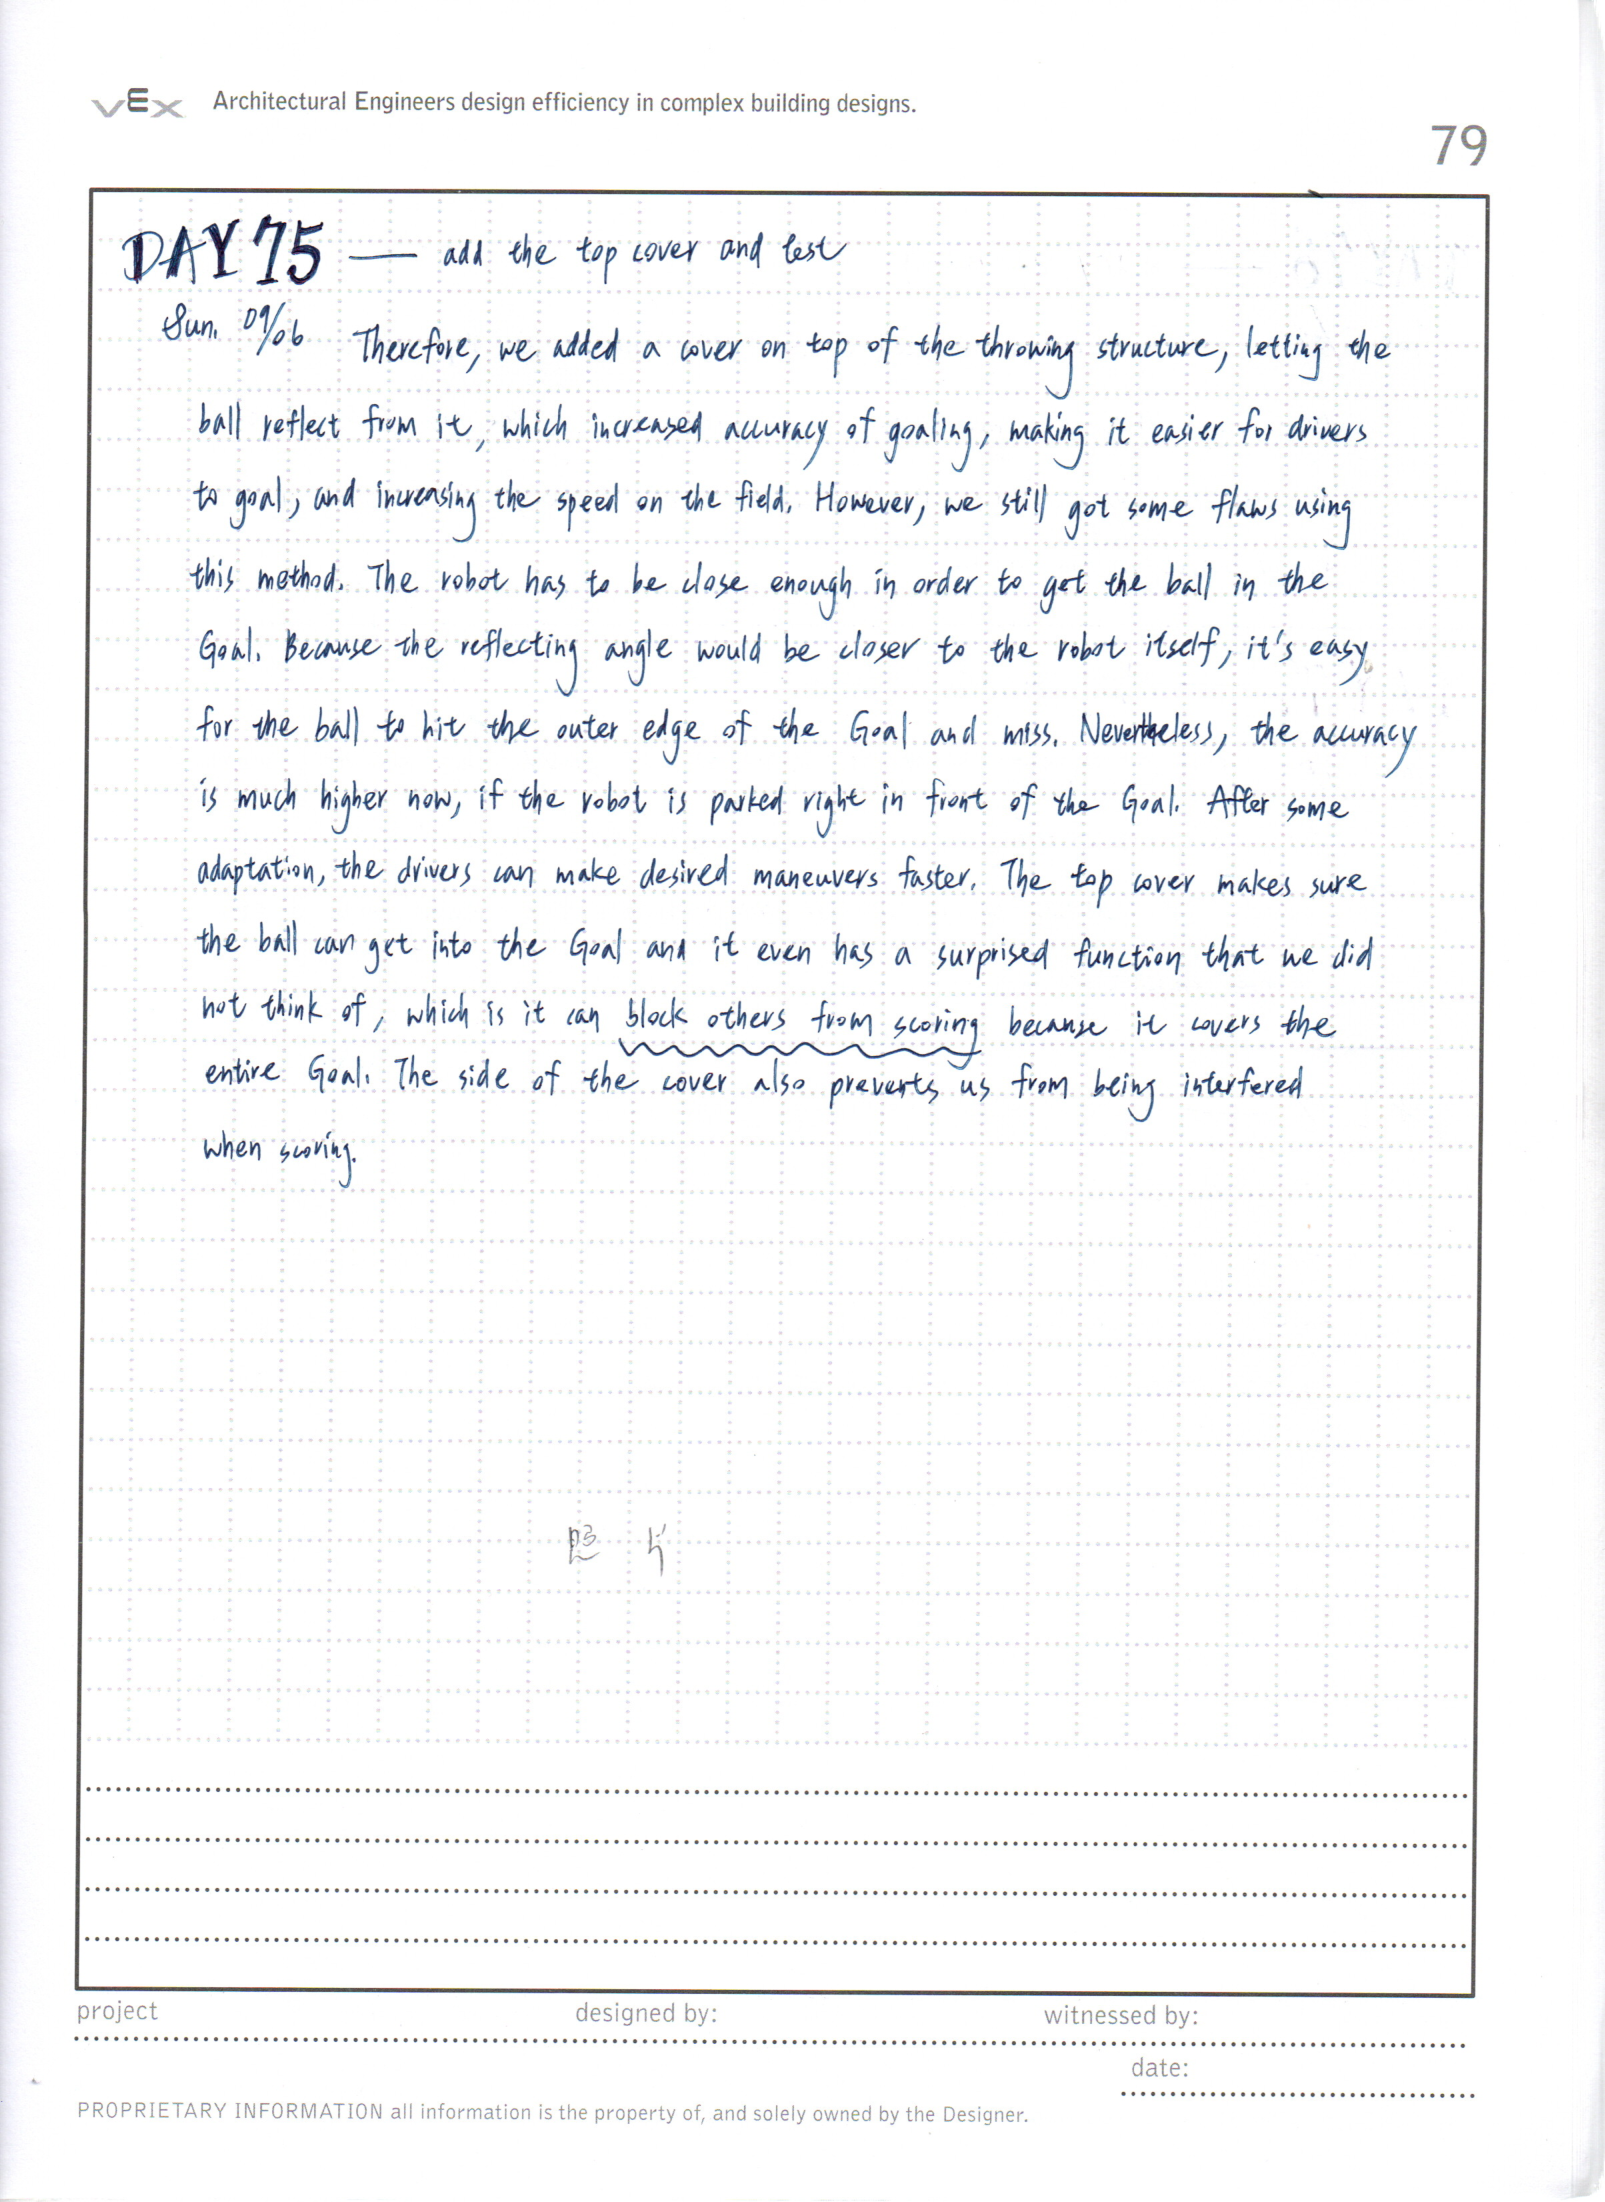 VEX Architectural Engineers design efficiency in complex building designs.
79
DAY 75 — add the top cover and test
Sun. 09/06 Therefore, we added a cover on top of the throwing structure, letting the
ball reflect from it, which increased accuracy of goaling, making it easier for drivers
to goal, and increasing the speed on the field. However, we still got some flaws using
this method. The robot has to be close enough in order to get the ball in the
Goal. Because the reflecting angle would be closer to the robot itself, it's easy
for the ball to hit the outer edge of the Goal and miss. Nevertheless, the accuracy
is much higher now, if the robot is parked right in front of the Goal. After some
adaptation, the drivers can make desired maneuvers faster. The top cover makes sure
the ball can get into the Goal and it even has a surprised function that we did
not think of, which is it can block others from scoring because it covers the
entire Goal. The side of the cover also prevents us from being interfered
when scoring.
照片
project
designed by:
witnessed by:
date:
PROPRIETARY INFORMATION all information is the property of, and solely owned by the Designer.